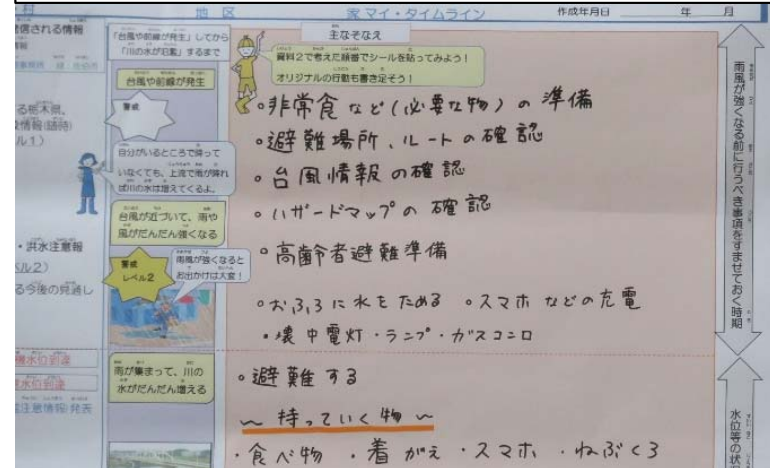 村
地 区
家 マイ・タイムライン
作成年月日 年 月
発信される情報
る栃木県、
ル1)
・洪水注意報
ル2)
る今後の見通し
水位到達
水位到達
注意情報 発表
「台風や前線が発生」してから
「川の水が氾濫」するまで
台風や前線が発生
警戒
自分がいるところで降って
いなくても、上流で雨が降れ
ば川の水は増えてくるよ。
台風が近づいて、雨や
風がだんだん強くなる
警戒
レベル2
雨風が強くなると
お出かけは大変!
雨が集まって、川の
水がだんだん増える
主なそなえ
資料2で考えた順番でシールを貼ってみよう!
オリジナルの行動も書き足そう!
○非常食など(必要な物)の準備
○避難場所、ルートの確認
○台風情報の確認
○ハザードマップの確認
○高齢者避難準備
○おふろに水をためる ○スマホなどの充電
・懐中電灯・ランプ・ガスコンロ
○避難する
〜持っていく物〜
・食べ物 ・着がえ ・スマホ ・ねぶくろ
雨風が強くなる前に行うべき事項をすませておく時期
水位等の状